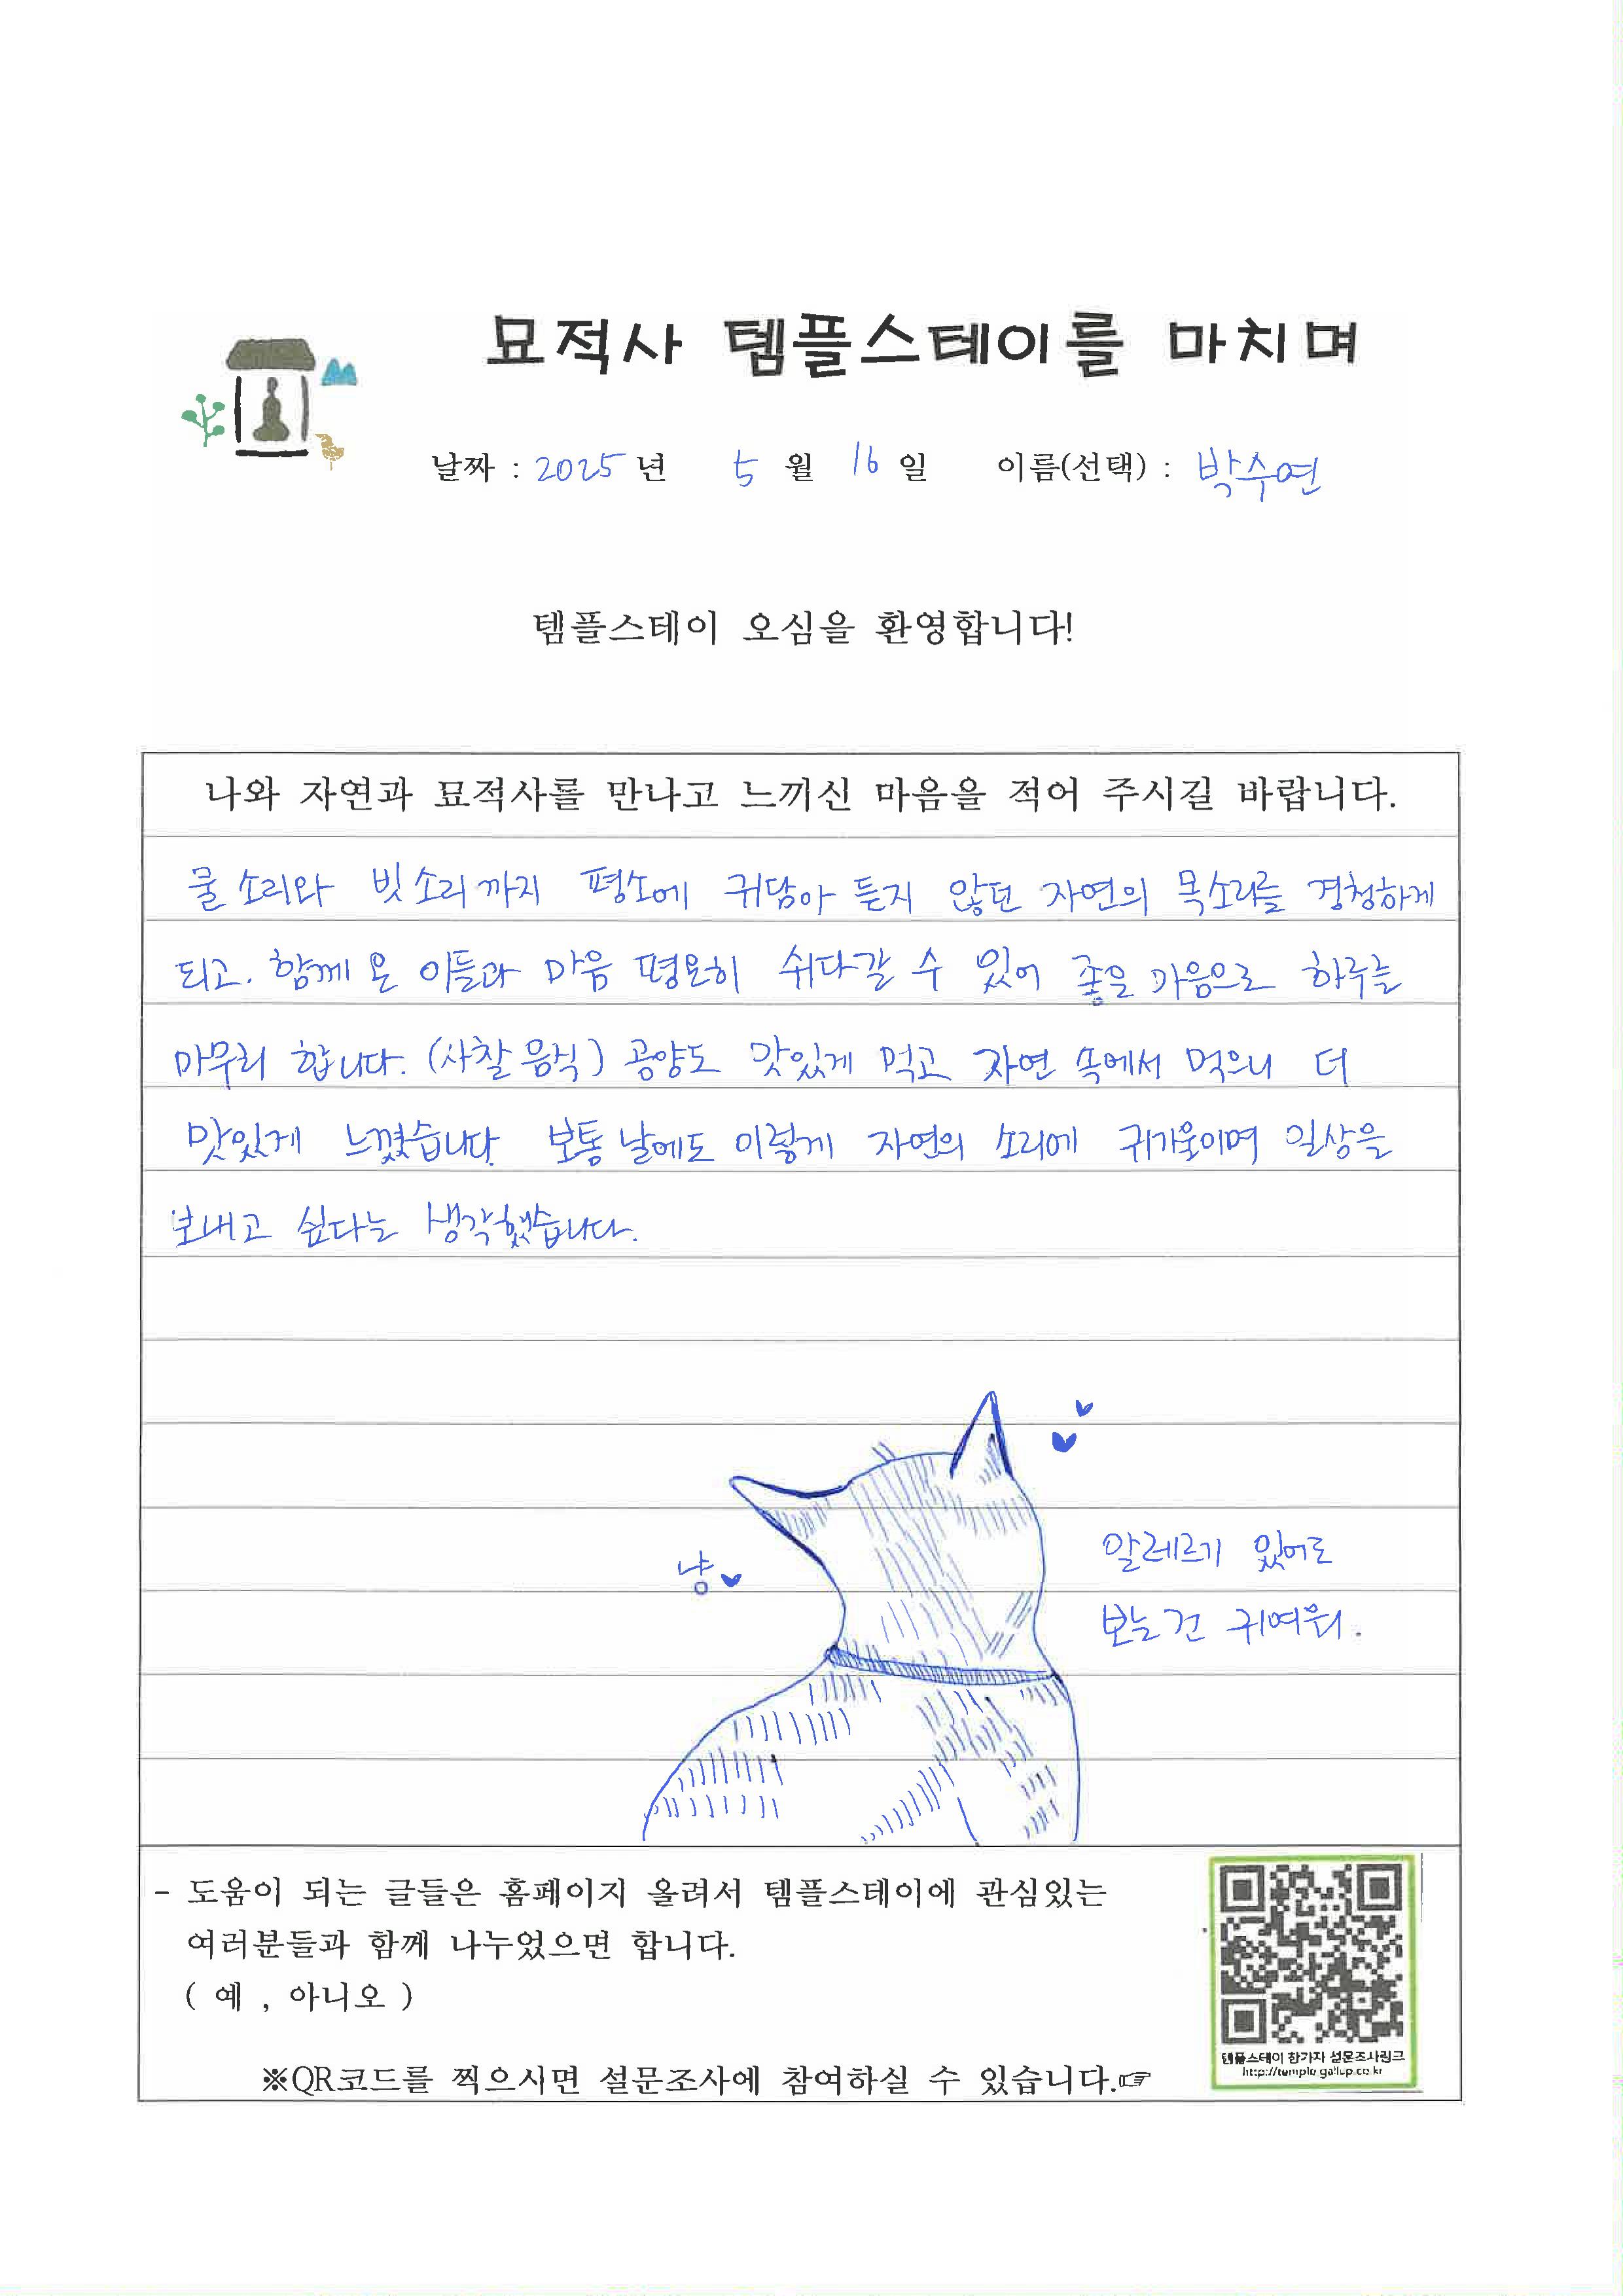 묘적사 템플스테이를 마치며
날짜 : 2025 년 5 월 16 일 이름(선택) : 박수연
템플스테이 오심을 환영합니다!
나와 자연과 묘적사를 만나고 느끼신 마음을 적어 주시길 바랍니다.
물소리와 빗소리까지 평소에 귀담아 듣지 않던 자연의 목소리를 경청하게
되고. 함께 온 이들과 마음 평온히 쉬다갈 수 있어 좋은 마음으로 하루를
마무리 합니다. (사찰음식) 공양도 맛있게 먹고 자연 속에서 먹으니 더
맛있게 느꼈습니다. 보통 날에도 이렇게 자연의 소리에 귀기울이며 일상을
보내고 싶다는 생각했습니다.
냥
알레르기 있어도
보는건 귀여워.
- 도움이 되는 글들은 홈페이지 올려서 템플스테이에 관심있는
여러분들과 함께 나누었으면 합니다.
( 예 , 아니오 )
※QR코드를 찍으시면 설문조사에 참여하실 수 있습니다.☞
템플스테이 참가자 설문조사링크
http://temple.gallup.co.kr